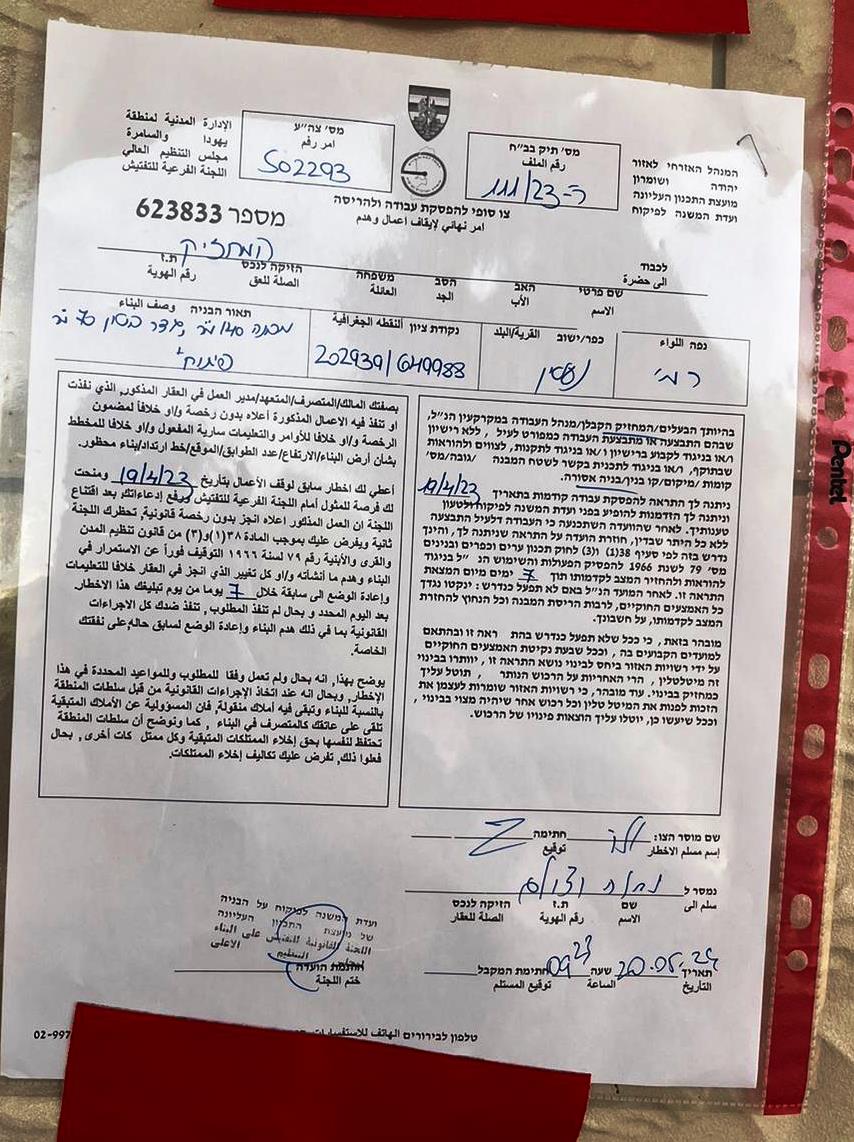 המנהל האזרחי לאזור
יהודה ושומרון
מועצת התכנון העליונה
ועדת המשנה לפיקוח
מס' תיק בב"ח
رقم الملف
ה-111/23
מס' צה"ע
امر رقم
502293
الإدارة المدنية لمنطقة
يهودا والسامرة
مجلس التنظيم العالي
اللجنة الفرعية للتفتيش
צו סופי להפסקת עבודה ולהריסה
امر نهائي لإيقاف اعمال وهدم
מספר 623833
לכבוד
الى حضرة
המחזיק
שם פרטי האב הסב משפחה הזיקה לנכס ת.ז
الاسم الأب الجد العائلة الصلة للعق رقم الهوية
נפה اللواء
כפר/ישוב القرية/البلد
נקודת ציון النقطه الجغرافية
תאור הבניה وصف البناء
202939/649988
בהיותך הבעלים/המחזיק הקבלן/מנהל העבודה במקרקעין הנ"ל,
שבהם התבצעה או מתבצעת העבודה כמפורט לעיל, ללא רישיון
ו/או בניגוד לקבוע ברישיון ו/או בניגוד לתקנות, לצווים ולהוראות
שבתוקף, ו/או בניגוד לתכנית בקשר לשטח המבנה /גובה/מס'
קומות /מיקום/קו בנין/בניה אסורה.
ניתנה לך התראה להפסקת עבודה קודמות בתאריך 19/4/23
וניתנה לך הזדמנות להופיע בפני ועדת המשנה לפיקוח ולטעון
טענותיך. לאחר שהוועדה השתכנעה כי העבודה דלעיל התבצעה
ללא כל היתר שבדין, חוזרת הועדה על התראה שניתנה לך, והינך
נדרש בזה לפי סעיף 38(1) ו(3) לחוק תכנון ערים וכפרים ובניינים
מס' 79 לשנת 1966 להפסיק הפעולות והשימוש הנ"ל בניגוד
להוראות ולהחזיר המצב לקדמותו תוך 7 ימים מיום המצאת
התראה זו. לאחר המועד הנ"ל באם לא תפעל כנדרש: ינקטו נגדך
כל האמצעים החוקיים, לרבות הריסת המבנה וכל הנחוץ להחזרת
המצב לקדמותו, על חשבונך.
מובהר בזאת, כי ככל שלא תפעל כנדרש בהת ראה זו ובהתאם
למועדים הקבועים בה, וככל שבעת נקיטת האמצעים החוקיים
על ידי רשויות האזור ביחס לבינוי נושא התראה זו, יוותרו בבינוי
זה מיטלטלין, הרי האחריות על הרכוש הנותר, תוטל עליך
כמחזיק בבינוי. עוד מובהר, כי רשויות האזור שומרות לעצמן את
הזכות לפנות את המיטל טלין וכל רכוש אחר שיהיה מצוי בבינוי,
וככל שיעשו כן, יוטלו עליך הוצאות פינויו של הרכוש.
بصفتك المالك/المتصرف/المتعهد/مدير العمل في العقار المذكور, الذي نفذت
او تنفذ فيه الاعمال المذكورة أعلاه بدون رخصة و/او خلافاً لمضمون
الرخصة و/او خلافا للأوامر والتعليمات سارية المفعول و/او خلافا للمخطط
بشأن أرض البناء/الارتفاع/عدد الطوابق/الموقع/خط ارتداد/بناء محظور.
أعطي لك اخطار سابق لوقف الأعمال بتأريخ 19/4/23 ومنحت
لك فرصة للمثول أمام اللجنة الفرعية للتفتيش ورفع إدعاءاتك بعد اقتناع
اللجنة ان العمل المذكور اعلاه انجز بدون رخصة قانونية, تحظرك اللجنة
ثانية ويفرض عليك بموجب المادة ٣٨(١)و(٣) من قانون تنظيم المدن
والقرى والأبنية رقم ٧٩ لسنة ١٩٦٦ التوقيف فوراً عن الاستمرار في
البناء وهدم ما أنشأته و/او كل تغيير الذي انجز في العقار خلافا للتعليمات
وإعادة الوضع الى سابقة خلال 7 يوما من يوم تبليغك هذا الاخطار.
بعد اليوم المحدد و بحال لم تنفذ المطلوب, تنفذ ضدك كل الاجراءات
القانونية بما في ذلك هدم البناء وإعادة الوضع لسابق حاله, على نفقتك
الخاصة.
يوضح بهذا, انه بحال ولم تعمل وفقا للمطلوب وللمواعيد المحددة في هذا
الإخطار, وبحال انه عند اتخاذ الإجراءات القانونية من قبل سلطات المنطقة
بالنسبة للبناء وتبقى فيه أملاك منقولة, فان المسؤولية عن الأملاك المتبقية
تلقى على عاتقك كالمتصرف في البناء, كما ونوضح أن سلطات المنطقة
تحتفظ لنفسها بحق إخلاء الممتلكات المتبقية وكل ممتل كات أخرى, بحال
فعلوا ذلك, تفرض عليك تكاليف إخلاء الممتلكات.
שם מוסר הצו: חתימה
إسم مسلم الاخطار توقيع
נמסר ל
سلم الى
שם ת.ז הזיקה לנכס
الاسم رقم الهوية الصلة للعقار
תאריך שעה חתימת המקבל
التأريخ الساعة توقيع المستلم
ועדת המשנה לפיקוח על הבניה
של מועצת התכנון העליונה
اللجنة القانونية للتفتيش على البناء
التنظيم الاعلى
חותמת הועדה
ختم اللجنة
טלפון לבירורים الهاتف للاستفسارات
02-997
Pentel